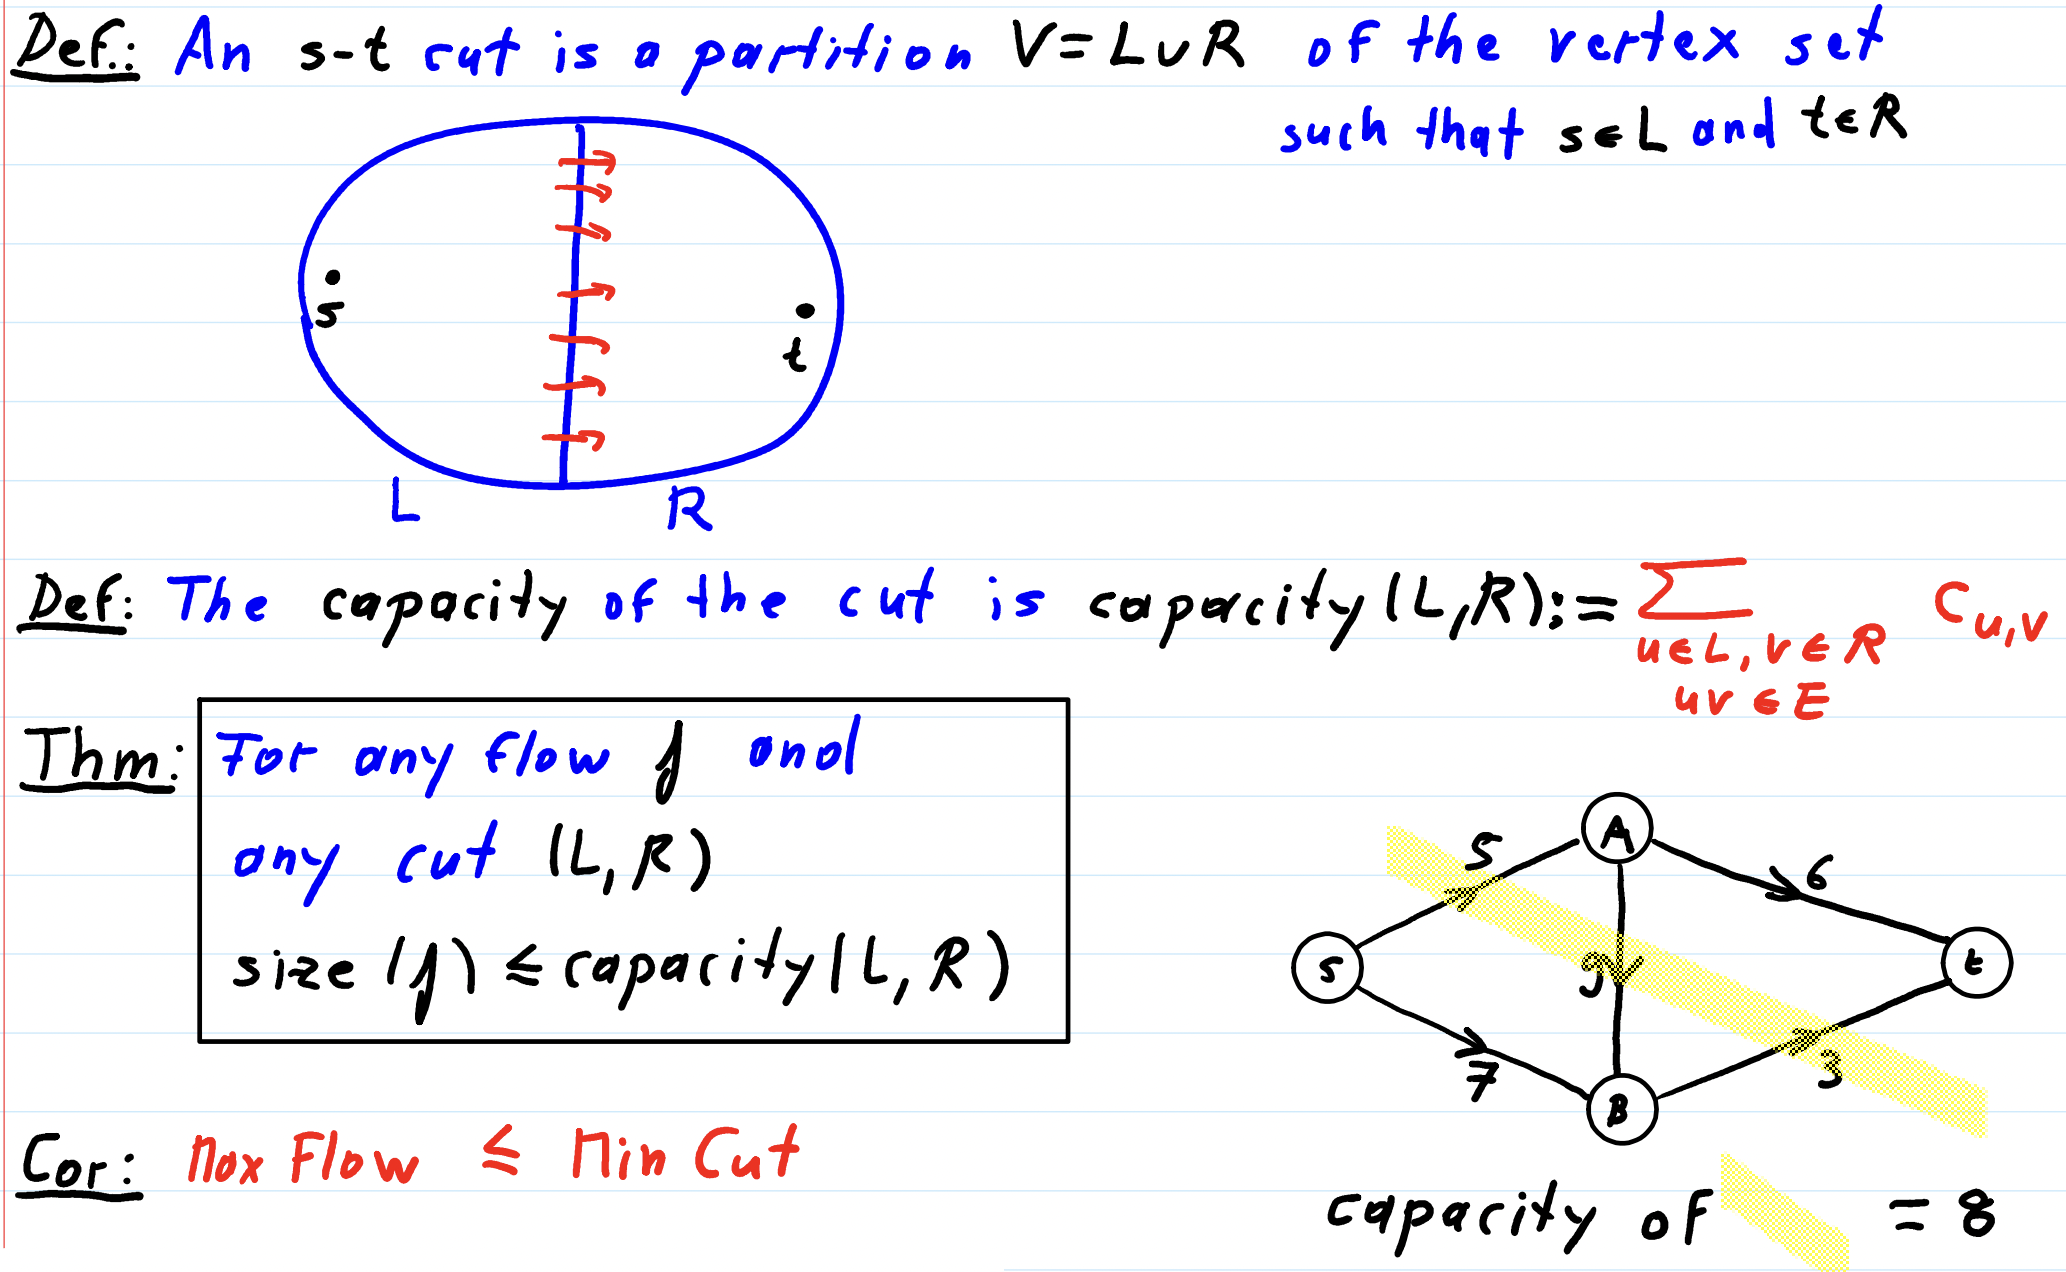 Def.: An s-t cut is a partition V = L ∪ R of the vertex set
such that s ∈ L and t ∈ R
s
t
L
R
Def: The capacity of the cut is capacity(L,R) := ∑ C_{u,v}
u ∈ L, v ∈ R
uv ∈ E
Thm: For any flow f and
any cut (L, R)
size(f) ≤ capacity(L, R)
A
5
6
s
9
t
7
3
B
Cor: Max Flow ≤ Min Cut
capacity of = 8